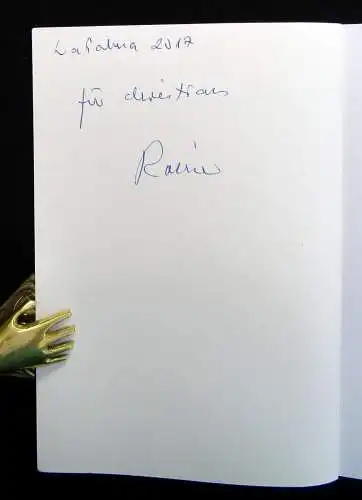 La Palma 2017
für Christian